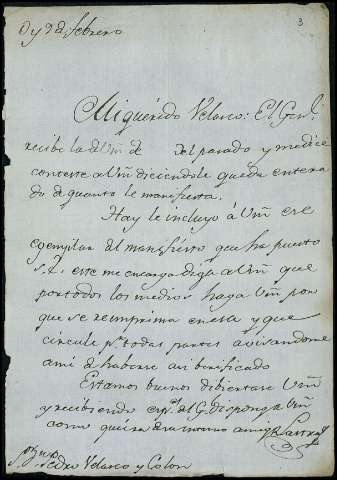 3
O y 9 de febrero
Mi querido Velasco: El Genl.
recibe la de Vm de Del pasado y me dice
conteste a Vm diciendole queda entera
do de quanto le manifiesta.
Hay le incluyo à Vm ese
egemplar del manifiesto que ha puesto
S.E. este me encarga diga a Vm que
por todos los medios haga Vm por
que se reimprima en esa y que
circule pr. todas partes avisandome
ami de haberse asi berificado
Estamos buenos debiertase Vm
y recibiendo esp. del G. disponga Vm
como quiera de su tmo amigo
Pedro Velasco y Colon